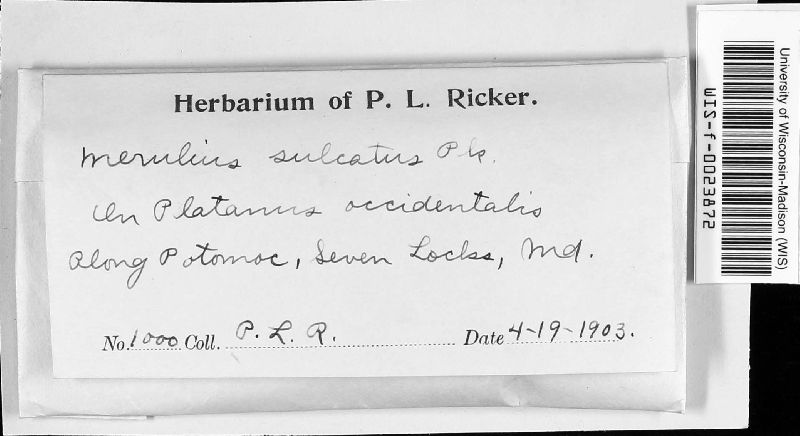 Herbarium of P. L. Ricker.
Merulius sulcatus Pk.
On Platanus occidentalis
Along Potomac, Seven Locks, Md.
No. 1000 Coll. P. L. R. Date 4-19-1903.
University of Wisconsin-Madison (WIS)
WIS-f-0023872